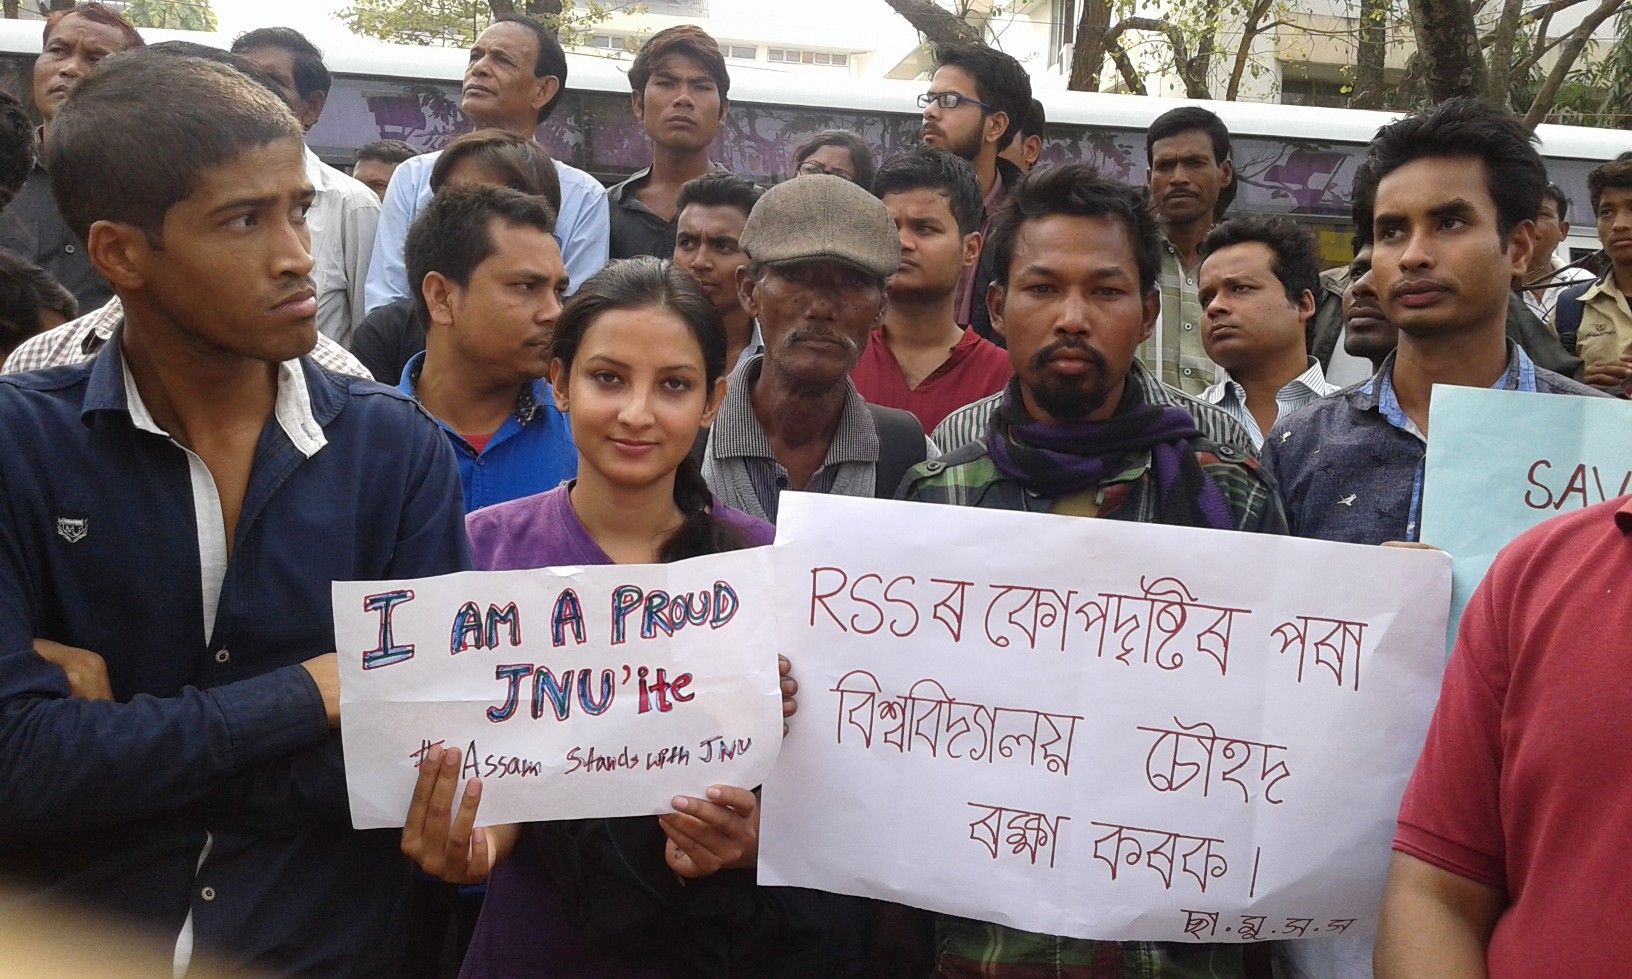 I AM A PROUD
JNU'ite
# Assam Stands with JNU
RSS ৰ কোপদৃষ্টিৰ পৰা
বিশ্ববিদ্যালয় চৌহদ
ৰক্ষা কৰক।
ছা.মু.স.স
SAV